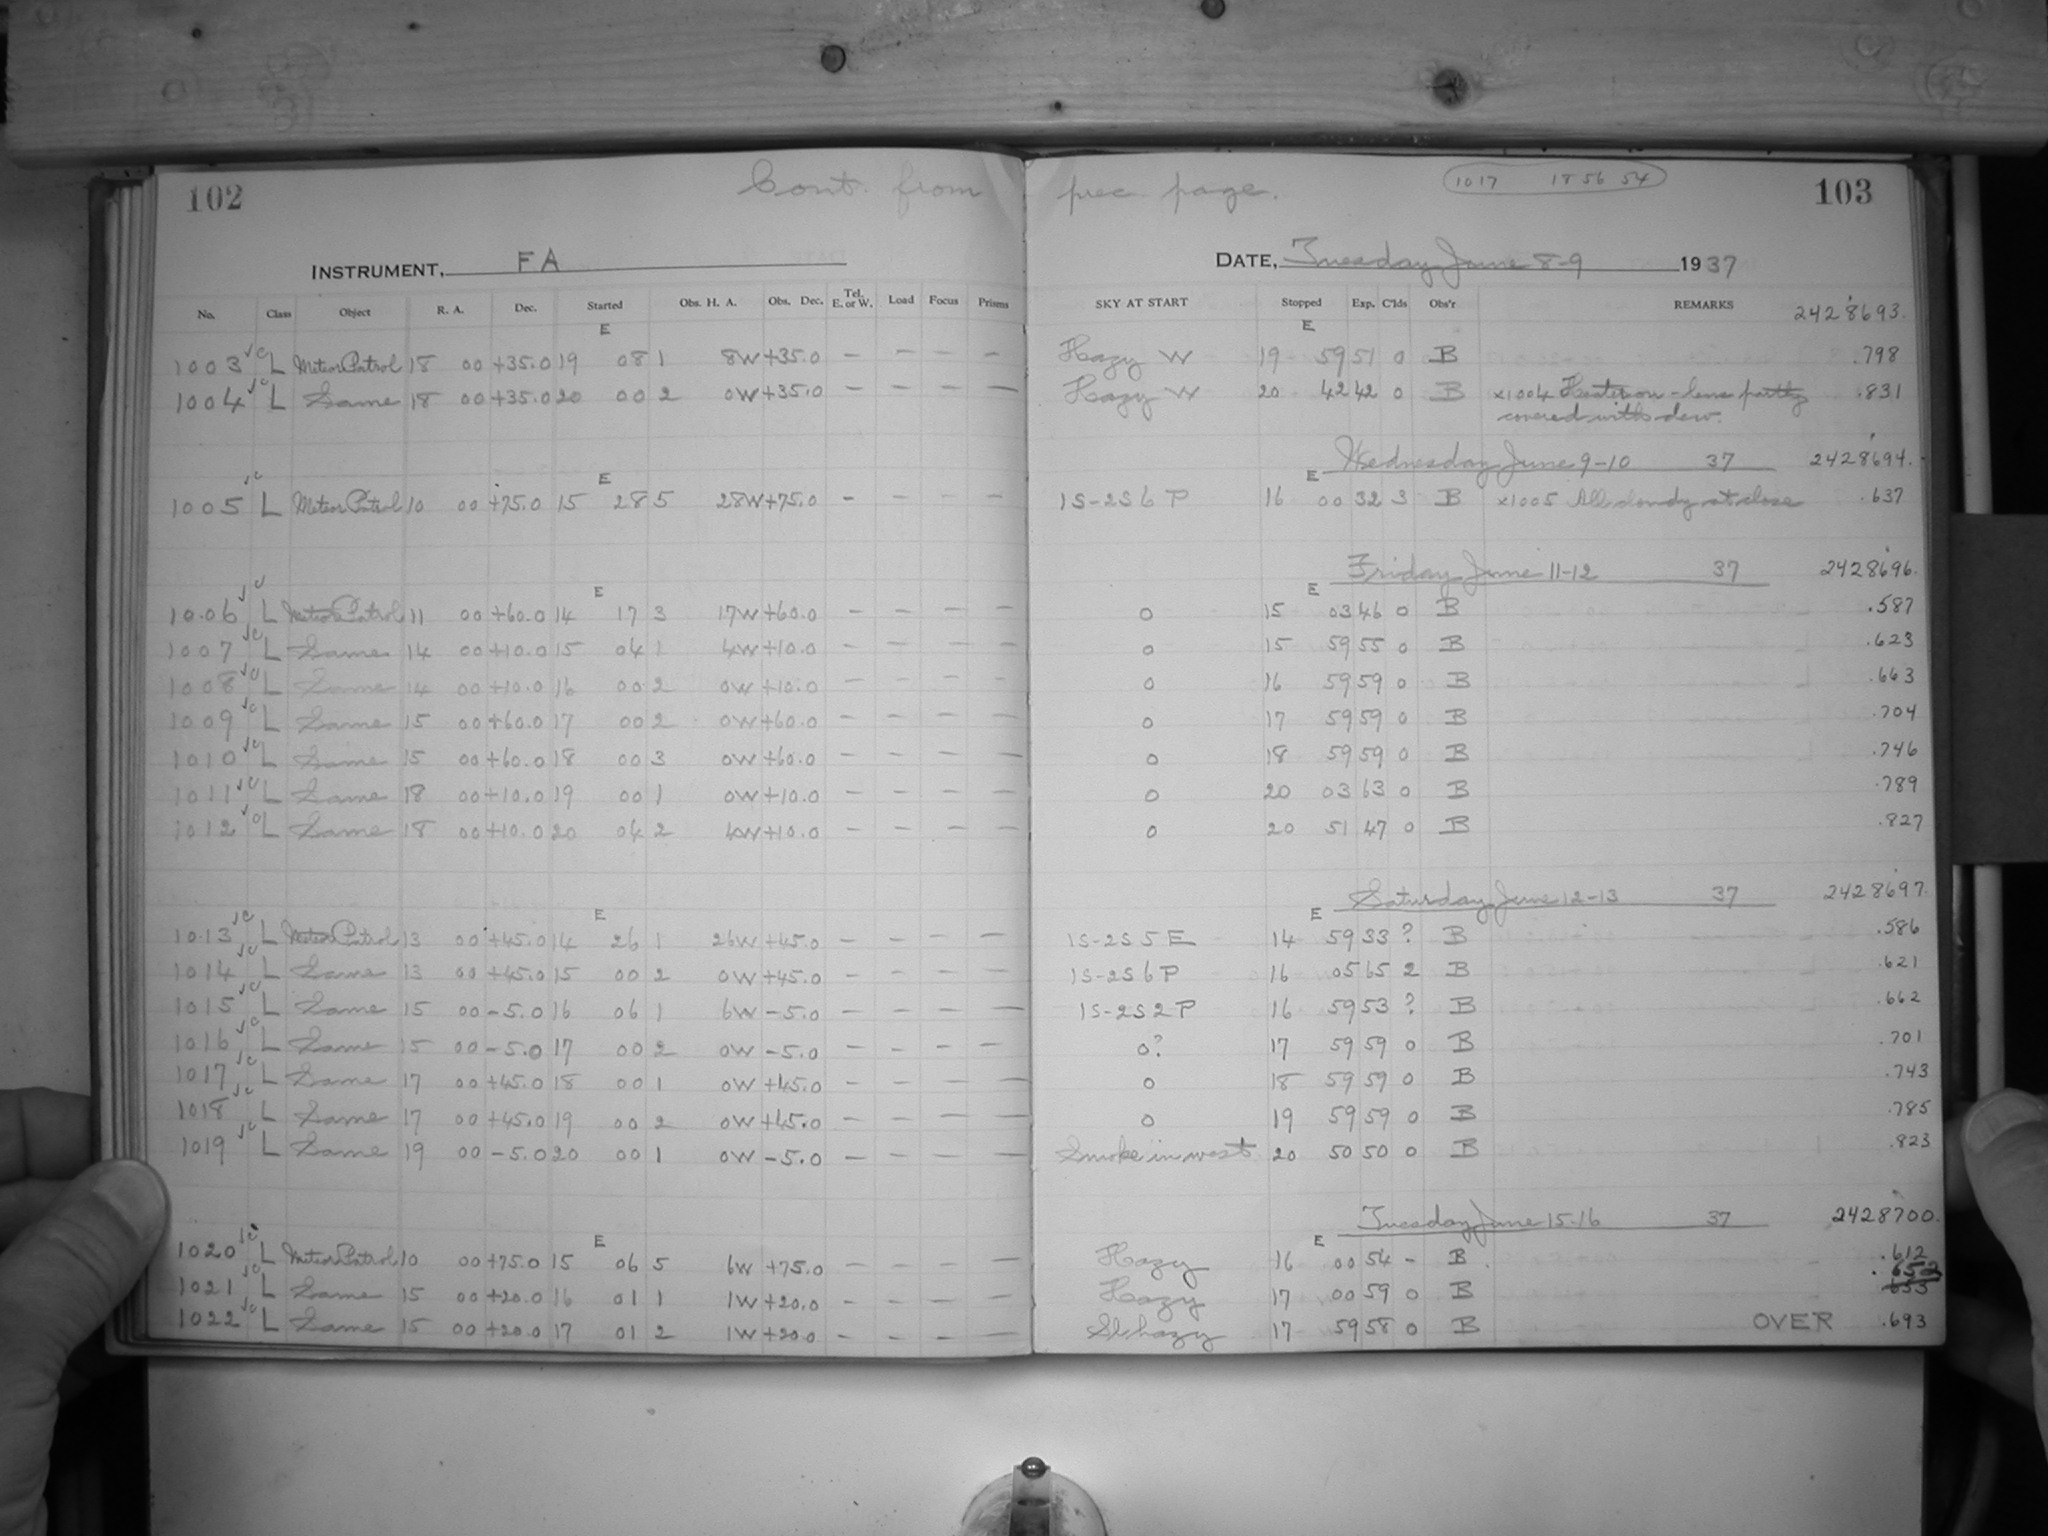 102 Cont. from prec. page. 1017 18 56 54 103
INSTRUMENT, FA DATE, Tuesday June 8-9 1937
No. Class Object R. A. Dec. Started Obs. H. A. Obs. Dec. Tel. E. or W. Load Focus Prisms SKY AT START Stopped Exp. C'lds Obs'r REMARKS 2428693.
E E
1003 L Meteor Patrol 18 00 +35.0 19 08 1 8W +35.0 - - - - Hazy W 19 59 51 0 B .798
1004 L Same 18 00 +35.0 20 00 2 0W +35.0 - - - - Hazy W 20 42 42 0 B x1004 Heater on - lens partly .831
covered with dew.
Wednesday June 9-10 37 2428694.
E E
1005 L Meteor Patrol 10 00 +75.0 15 28 5 28W +75.0 - - - - 1S-2S6P 16 00 32 3 B x1005 All cloudy at close .637
Friday June 11-12 37 2428696.
E E
1006 L Meteor Patrol 11 00 +60.0 14 17 3 17W +60.0 - - - - 0 15 03 46 0 B .587
1007 L Same 14 00 +10.0 15 04 1 4W +10.0 - - - - 0 15 59 55 0 B .623
1008 L Same 14 00 +10.0 16 00 2 0W +10.0 - - - - 0 16 59 59 0 B .663
1009 L Same 15 00 +60.0 17 00 2 0W +60.0 - - - - 0 17 59 59 0 B .704
1010 L Same 15 00 +60.0 18 00 3 0W +60.0 - - - - 0 18 59 59 0 B .746
1011 L Same 18 00 +10.0 19 00 1 0W +10.0 - - - - 0 20 03 63 0 B .789
1012 L Same 18 00 +10.0 20 04 2 4W +10.0 - - - - 0 20 51 47 0 B .827
Saturday June 12-13 37 2428697.
E E
1013 L Meteor Patrol 13 00 +45.0 14 26 1 26W +45.0 - - - - 1S-2S5E 14 59 33 ? B .586
1014 L Same 13 00 +45.0 15 00 2 0W +45.0 - - - - 1S-2S6P 16 05 65 2 B .621
1015 L Same 15 00 -5.0 16 06 1 6W -5.0 - - - - 1S-2S2P 16 59 53 ? B .662
1016 L Same 15 00 -5.0 17 00 2 0W -5.0 - - - - 0? 17 59 59 0 B .701
1017 L Same 17 00 +45.0 18 00 1 0W +45.0 - - - - 0 18 59 59 0 B .743
1018 L Same 17 00 +45.0 19 00 2 0W +45.0 - - - - 0 19 59 59 0 B .785
1019 L Same 19 00 -5.0 20 00 1 0W -5.0 - - - - Smoke in west 20 50 50 0 B .823
Tuesday June 15-16 37 2428700.
E E
1020 L Meteor Patrol 10 00 +75.0 15 06 5 6W +75.0 - - - - Hazy 16 00 54 - B .612
1021 L Same 15 00 +20.0 16 01 1 1W +20.0 - - - - Hazy 17 00 59 0 B
1022 L Same 15 00 +20.0 17 01 2 1W +20.0 - - - - Sl. hazy 17 59 58 0 B OVER .693